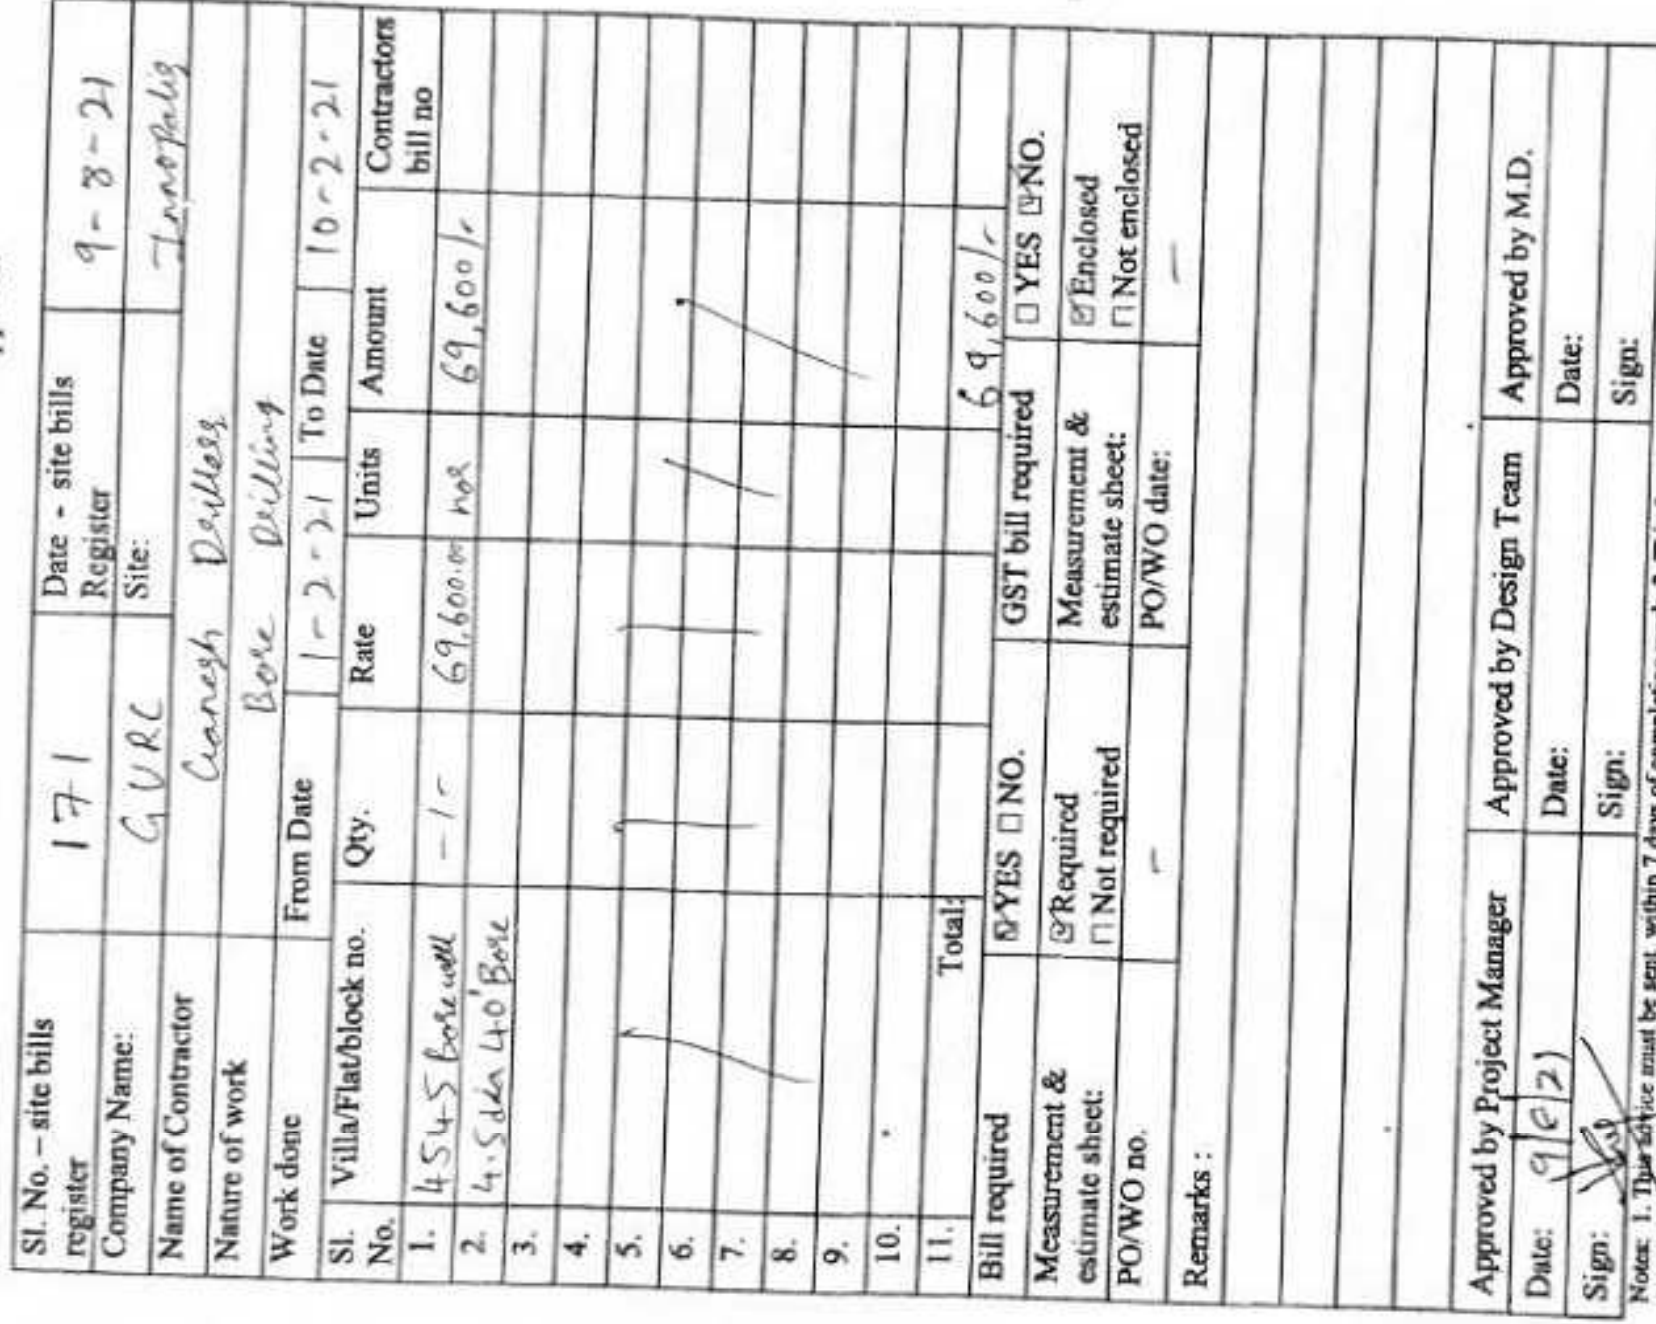 Sl. No. – site bills register 171 Date - site bills Register 9-8-21
Company Name: GVRC Site: Innopolis
Name of Contractor Ganesh Drillers
Nature of work Bore Drilling
Work done From Date 1-2-21 To Date 10-2-21
Sl. No. Villa/Flat/block no. Qty. Rate Units Amount Contractors bill no
1. 4545 Borewell -1-
2. 4.5 dia 40' Bore 69,600.00 nos 69,600/-
3.
4.
5.
6.
7.
8.
9.
10.
11. Total: 69,600/-
Bill required ☑YES ☐NO. GST bill required ☐YES ☑NO.
Measurement & estimate sheet: ☑Required Measurement & estimate sheet: ☑Enclosed
☐Not required ☐Not enclosed
PO/WO no. - PO/WO date: -
Remarks :
Approved by Project Manager Approved by Design Team Approved by M.D.
Date: 9/8/21 Date: Date:
Sign: Sign: Sign:
Notes: 1. This advice must be sent within 7 days of completion